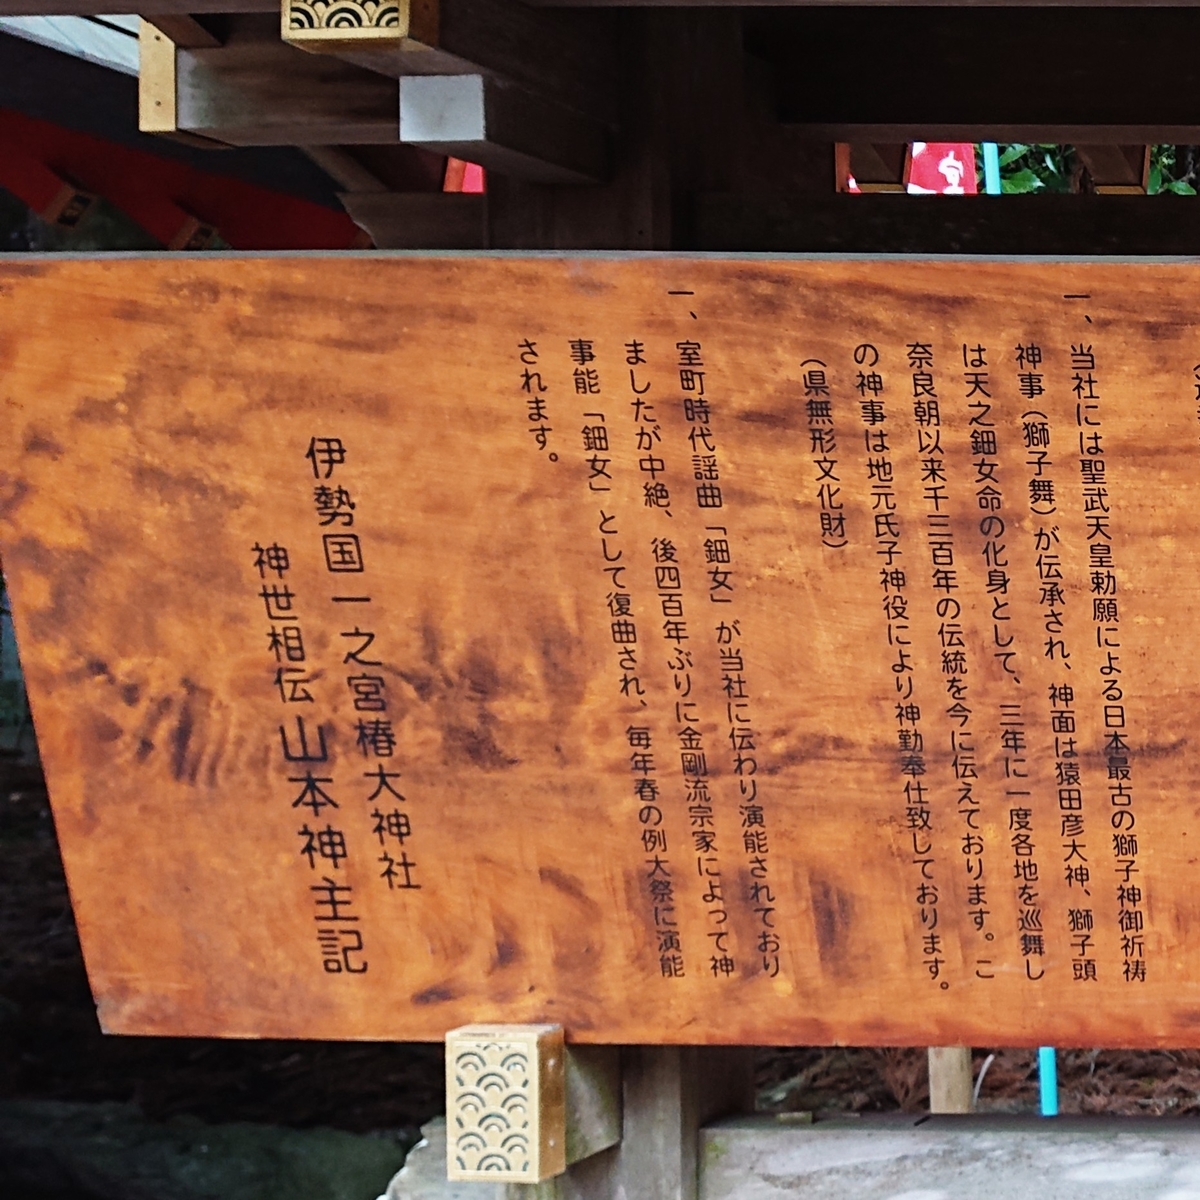 一、当社には聖武天皇勅願による日本最古の獅子神御祈祷
神事(獅子舞)が伝承され、神面は猿田彦大神、獅子頭
は天之鈿女命の化身として、三年に一度各地を巡舞し
奈良朝以来千三百年の伝統を今に伝えております。こ
の神事は地元氏子神役により神勤奉仕致しております。
(県無形文化財)
一、室町時代謡曲「鈿女」が当社に伝わり演能されており
ましたが中絶、後四百年ぶりに金剛流宗家によって神
事能「鈿女」として復曲され、毎年春の例大祭に演能
されます。
伊勢国一之宮椿大神社
神世相伝山本神主記